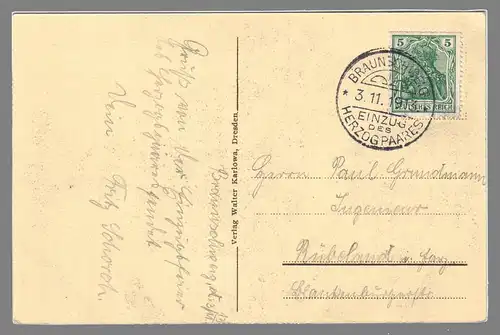 Gruß von der Einzugsfeier
des Herzogspaares
Dein Fritz
Braunschweig, d. 3/11. 13
Verlag Walter Karlowa, Dresden.
5 5
DEUTSCHES REICH
BRAUNSCHWEIG
* 3.11.1913 *
EINZUG
DES
HERZOGPAARES
Herrn Paul Grundmann
Ingenieur
Rübeland a. Harz
Blankenburgerstr.